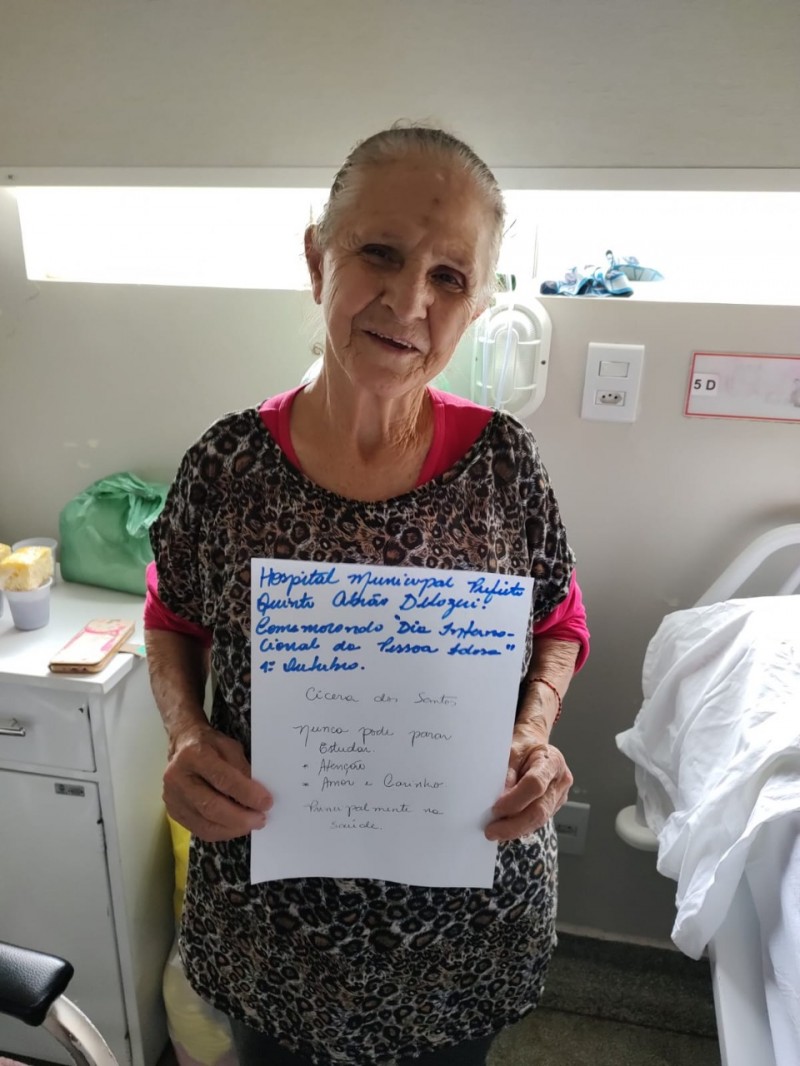 Hospital Municipal Prefeito
Quinto Abrão Delazeri!
Comemorando "Dia Interna-
cional da Pessoa Idosa"
1º Outubro.
Cicera dos Santos
Nunca pode parar
Estudar.
• Atenção
• Amor e Carinho
Principalmente na
saúde.
5 D